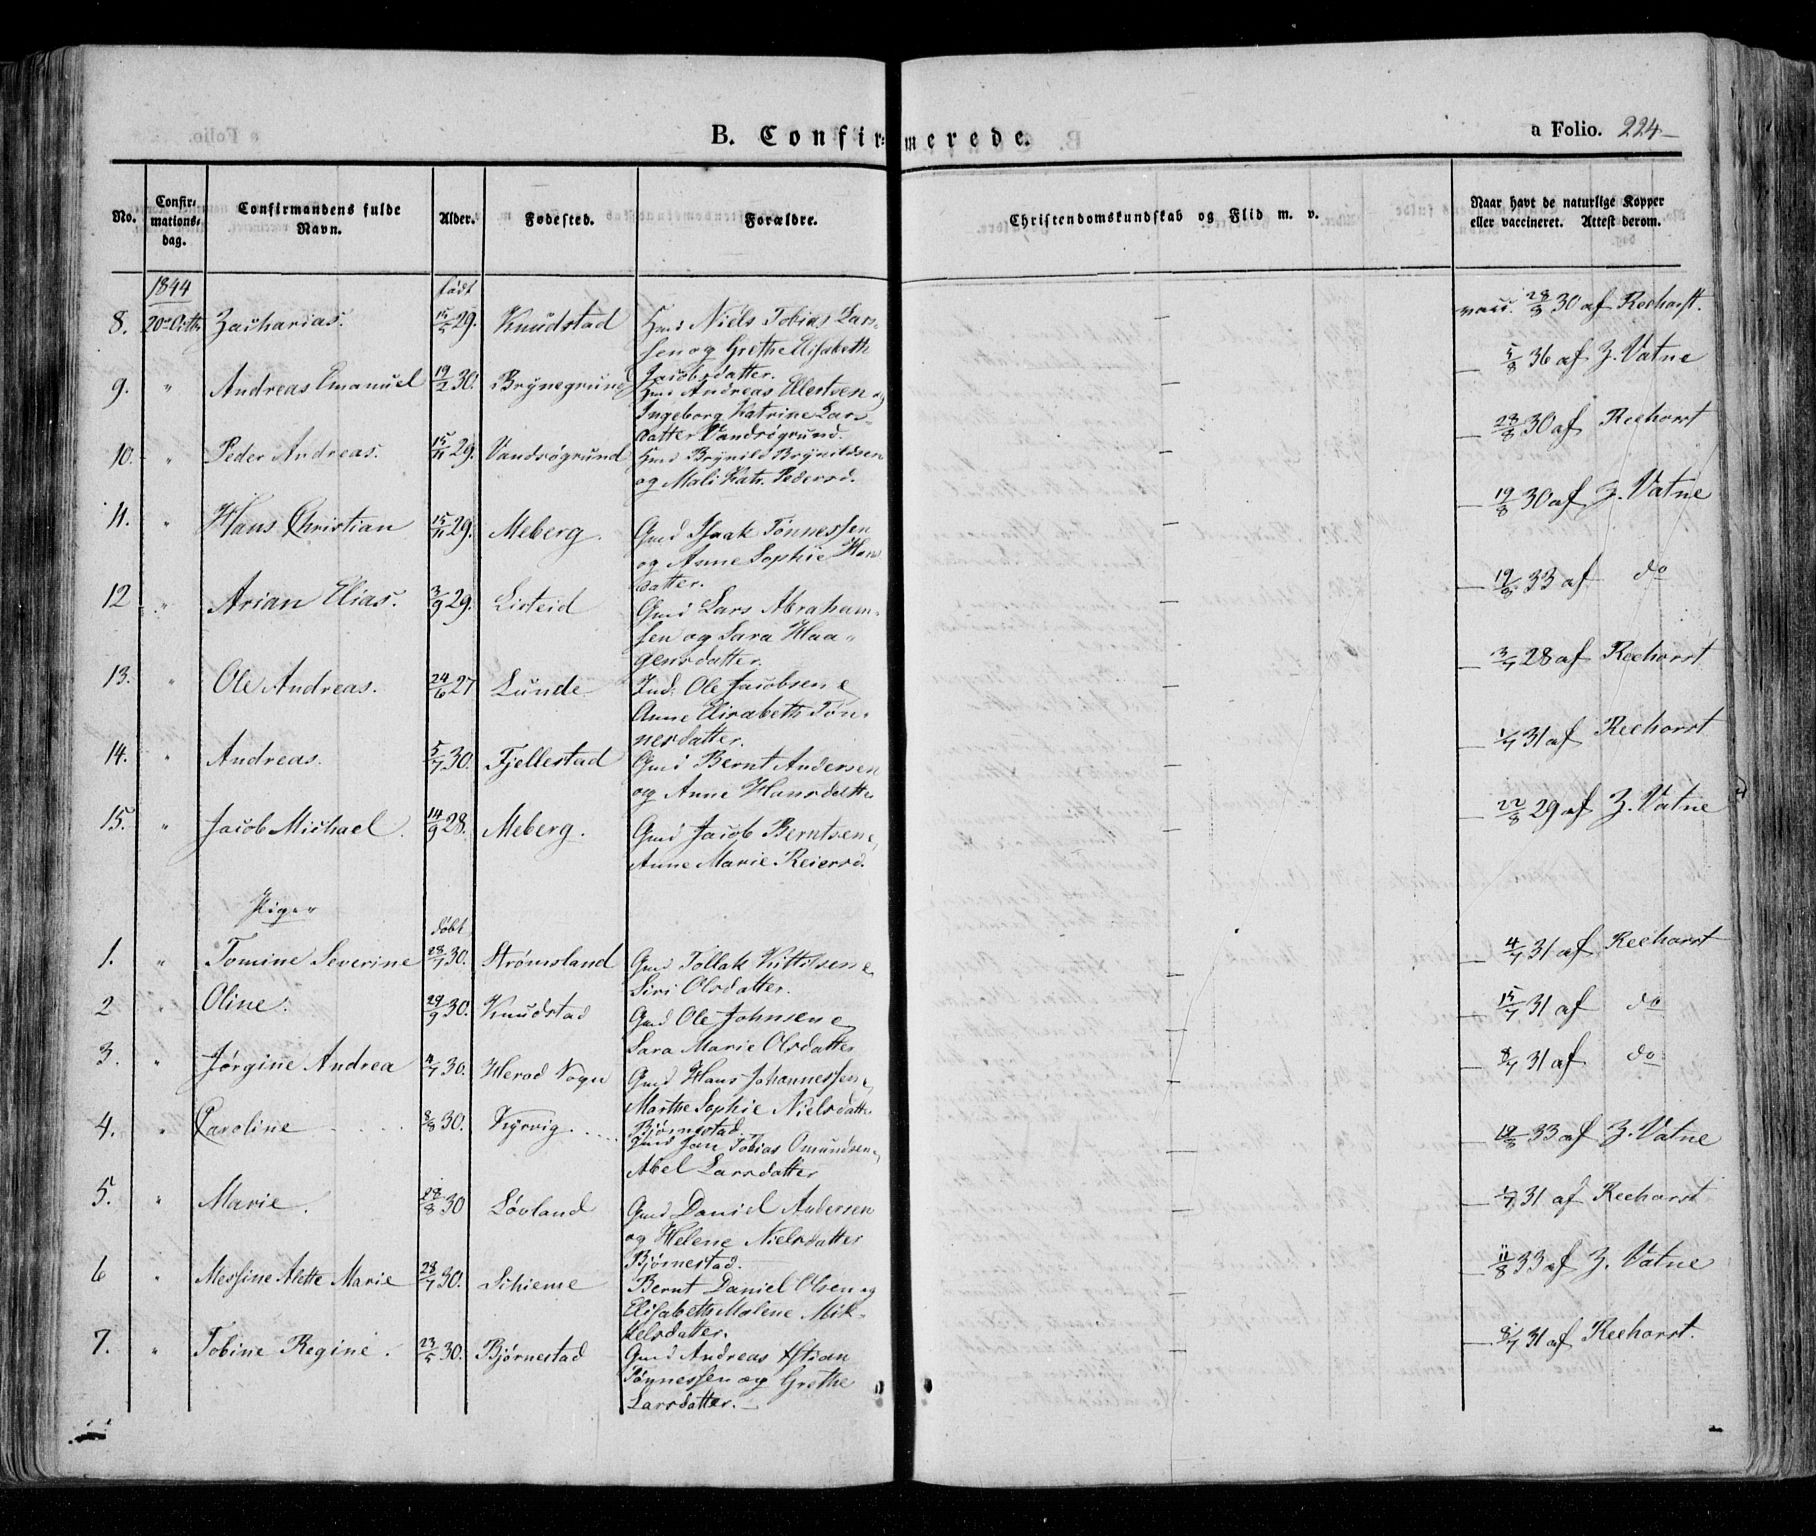 B. Confirmerede.
a Folio. 224
No.
Confir-
mations-
dag.
Confirmandens fulde
Navn.
Alder.
Fødested.
Forældre.
Christendomskundskab og Flid m. v.
Naar havt de naturlige Kopper
eller vaccineret. Attest derom.
1844
født
8. 20de Octbr Zacharias. 15/5 29. Knudstad Huusmd Niels Tobias Lars-
sen og Grethe Elisabeth
Jacobsdatter.
vacc. 28/8 30 af Reehorst.
9. " Andreas Emanuel 19/2 30. Brynegrund Andreas Ellertsen og
Ingeborg Katrine Lars-
datter Vandsøgrund.
— 5/8 36 af Z. Vatne
10. " Peder Andreas. 15/11 29. Vandsøgrund Brynild Brynildsen
og Mali Katr. Pedersd.
— 28/8 30 af Reehorst
11. " Hans Christian 15/11 29. Meberg. Gmd Isaak Tønnessen
og Anne Sophie Hans
datter.
— 19/8 30 af Z. Vatne
12 " Arian Elias. 3/9 29. Listeid Gmd Lars Abraham-
sen og Sara Haa-
gensdatter.
— 19/8 33 af do
13. " Ole Andreas. 24/6 27 Lunde Ind. Ole Jacobsen &
Anne Elisabeth Tøn-
nesdatter.
— 3/7 28 af Reehorst
14. " Andreas. 5/7 30. Fjellestad Gmd Bernt Andersen
og Anne Hansdatter
— 1/7 31 af Reehorst
15. " Jacob Michael. 14/9 28. Meberg. Gmd Jacob Berntsen &
Anne Marie Reiersd.
— 22/8 29 af Z. Vatne
Piger
døbt
1. " Tomine Severine 28/7 30. Strømsland Gmd Tollak Kittilsen &
Siri Olsdatter.
— 4/7 31 af Reehorst
2 " Oline. 29/9 30. Knudstad Gmd Ole Johnsen &
Sara Marie Olsdatter
— 15/7 31 af do
3. " Jørgine Andrea 4/7 30. Herad Sogn Gmd Hans Johannessen &
Marthe Sophie Nielsdatter
Bjørnestad.
— 8/7 31 af do
4. " Caroline 8/8 30. Kyrvig Gmd Jan Tobias Omundsen &
Abel Larsdatter
— 19/8 33 af Z. Vatne
5. " Marie. 28/8 30 Løvland Gmd Daniel Andersen
og Helene Nielsdatter
Bjørnestad.
— 1/7 31 af Reehorst
6 " Messine Alette Marie 28/7 30. Schieme Bernt Daniel Olsen og
Elisabeth Malene Mik-
kelsdatter.
— 11/8 33 af Z. Vatne
7. " Tobine Regine. 23/5 30. Bjørnestad Gmd Andreas Xstian
Tønnessen og Grethe
Larsdatter.
— 8/7 31 af Reehorst.